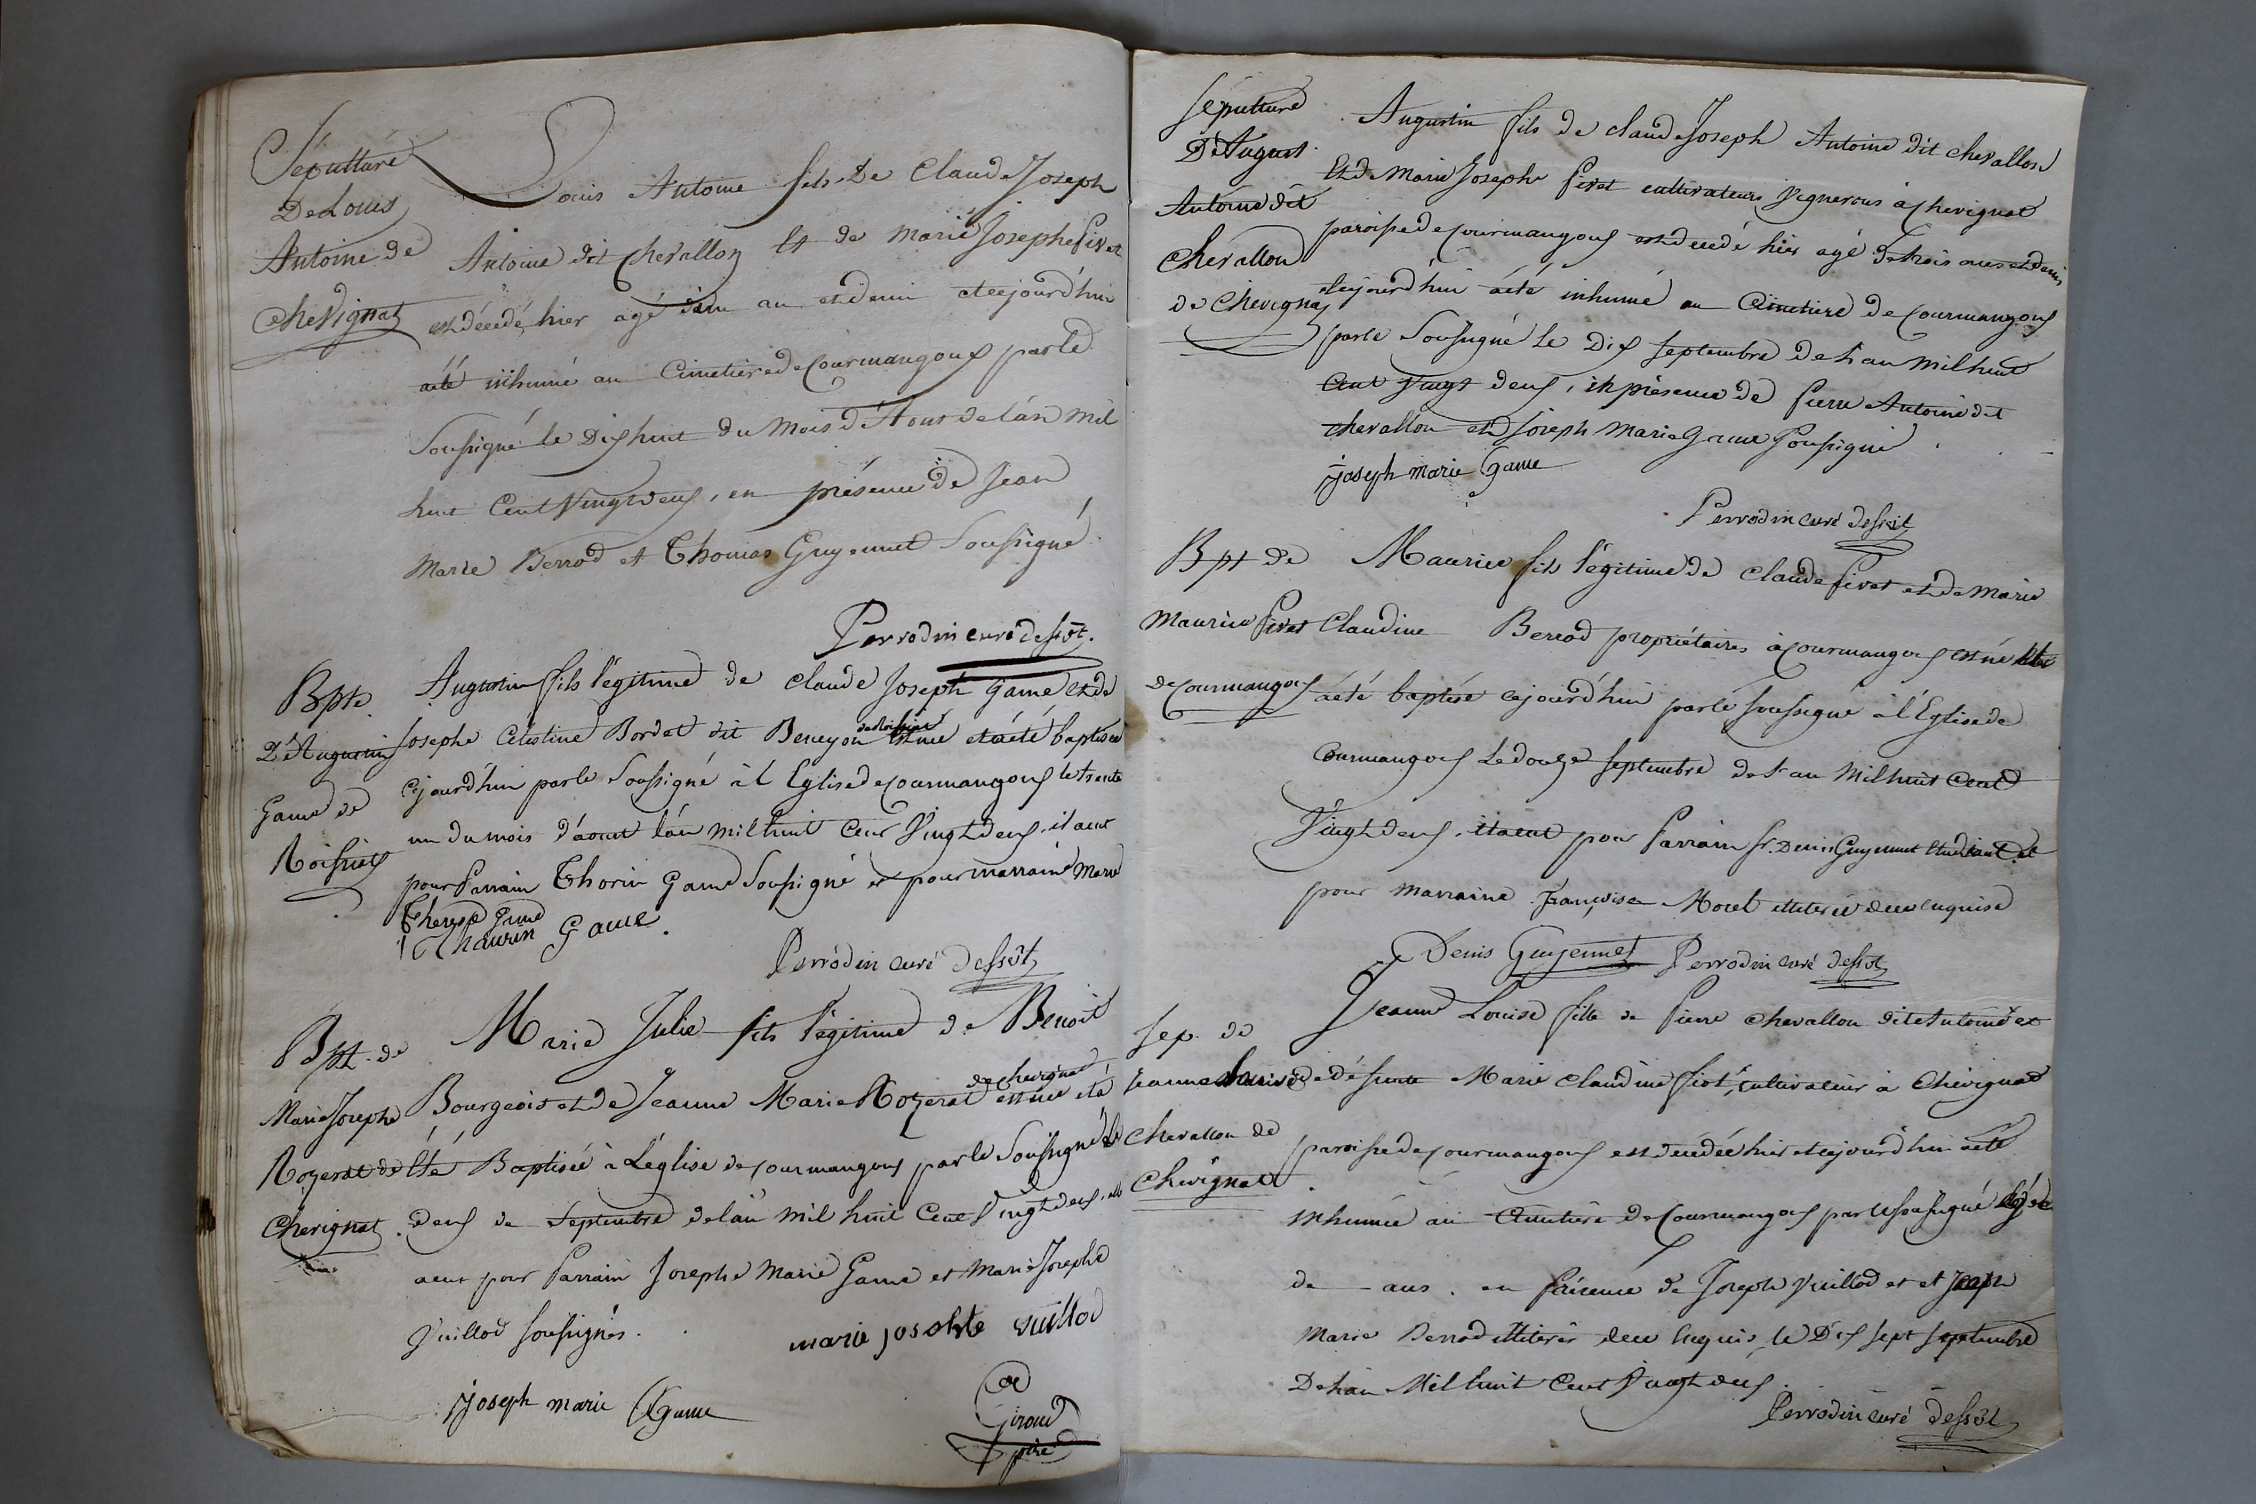 Sépulture
De Louis
Antoine de
Chevignat
Louis Antoine fils De Claude Joseph
Antoine dit Chevallon Et de marie Josephe fivet
est décédé hier agé d'un an et demi et cejourd'hui
a été inhumé au Cimetiere de Courmangoux par le
Soussigné le Dix huit du Mois d'Aout de l'an mil
huit Cent Vingt deux, en présence de Jean
Marie Berrod et Thomas Guyennet Soussigné
Perrodin curé dessőt.
Bpte
D'Augustin
Game de
Roissiat
Augustin fils légitime de Claude Joseph Game et de
Josephe Célestine Bordet dit Beneyon de Roissiat est né et a été baptisé
cejourd'hui par le Soussigné à l'Eglise de Courmangoux le trente
un du mois d'aout l'an mil huit Cent Vingt deux, il a eut
pour Parrain Thorin Game Soussigné et pour marraine Marie
Therese Game
Thaurin Game.
Perrodin curé dessőt
Bpt. de
Marie Josephe
Rozerat de
Chevignat
Marie Julie fils légitime de Benoit
Bourgeois et de Jeanne Marie Rozerat de Chevignat est née et a
été Baptisée à L'église de Courmangoux par le Soussigné le
deux de Septembre de l'an mil huit Cent Vingt deux, elle
a eut pour Parrain Josephe Marie Game et Marie Josephe
Vuillod soussignés.
marie josephte vuillod
joseph marie Game
Giroud
ptre
Sépulture
D'August.
Antoine dit
Chevallon
de Chevignat
Augustin fils de claude Joseph Antoine dit chevallon
Et de Marie Josephe fivet cultivateurs Vignerons à Chevignat
paroisse de Courmangoux est décédé hier agé de trois ans et demi
et cejourd'hui a été inhumé au Cimetiere de Courmangoux
par le Soussigné le Dix septembre de l'an mil huit
Cent Vingt deux, en présence de Pierre Antoine dit
chevallon et Joseph Marie Game Soussigné
joseph marie Game
Perrodin curé dessőt
Bpt de
Maurice fivet
de Courmangoux
Maurice fils légitime de Claude fivet et de Marie
Claudine Berrod propriétaires à Courmangoux est né hier
a été baptisé cejourd'hui par le soussigné à l'Eglise de
Courmangoux Le douze septembre de l'an Mil huit Cent
Vingt deux, il a eut pour Parrain Sr. Denis Guyennet Etudiant et
pour marraine Françoise Morel illiterée de ce enquise
Denis Guyennet Perrodin curé dessőt
Sep. de
Jeanne Louise
Chevallon de
Chevignat
Jeanne Louise fille de Pierre Chevallon dit Antoine et
de défunte Marie Claudine fiot, cultivateur à Chevignat
paroisse de Courmangoux est décédée hier et cejourd'hui a été
inhumée au Cimetiere de Courmangoux par le soussigné agée
de ans. en présence de Joseph Vuillod et et Joseph
Marie Berrod illiterés de ce enquis, le Dix sept septembre
De l'an Mil huit Cent Vingt deux.
Perrodin curé dessőt